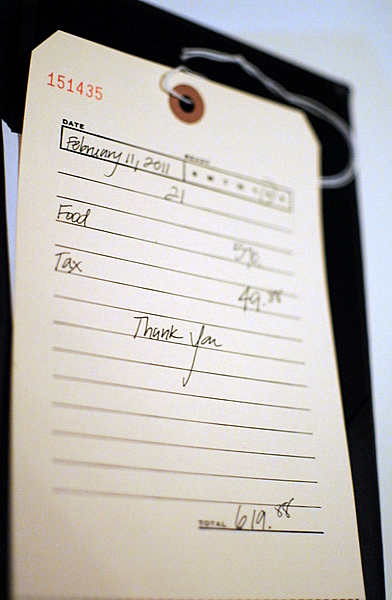 151435
DATE
February 11, 2011
21
Food 570.
Tax 49.88
Thank you
TOTAL 619.88